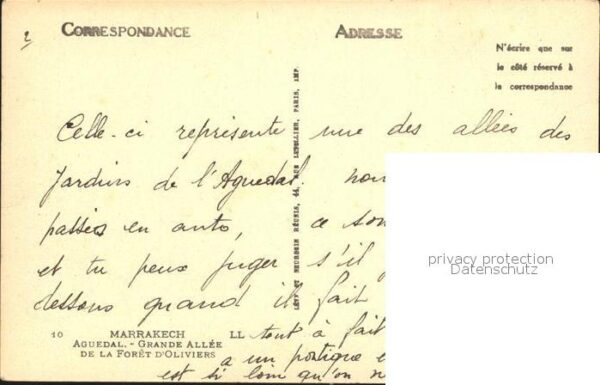 2
CORRESPONDANCE
ADRESSE
N'écrire que sur
le côté réservé à
la correspondance
Celle-ci représente une des allées des
Jardins de l'Aguedal. nou
passés en auto, ce son
et tu peux juger s'il
dessous quand il fait
tout à fait
a un portique e
est si loin qu'on n
LÉVY ET NEURDEIN RÉUNIS, 44, RUE LETELLIER, PARIS, IMP.
10 MARRAKECH LL
AGUEDAL. - GRANDE ALLÉE
DE LA FORÊT D'OLIVIERS
privacy protection
Datenschutz